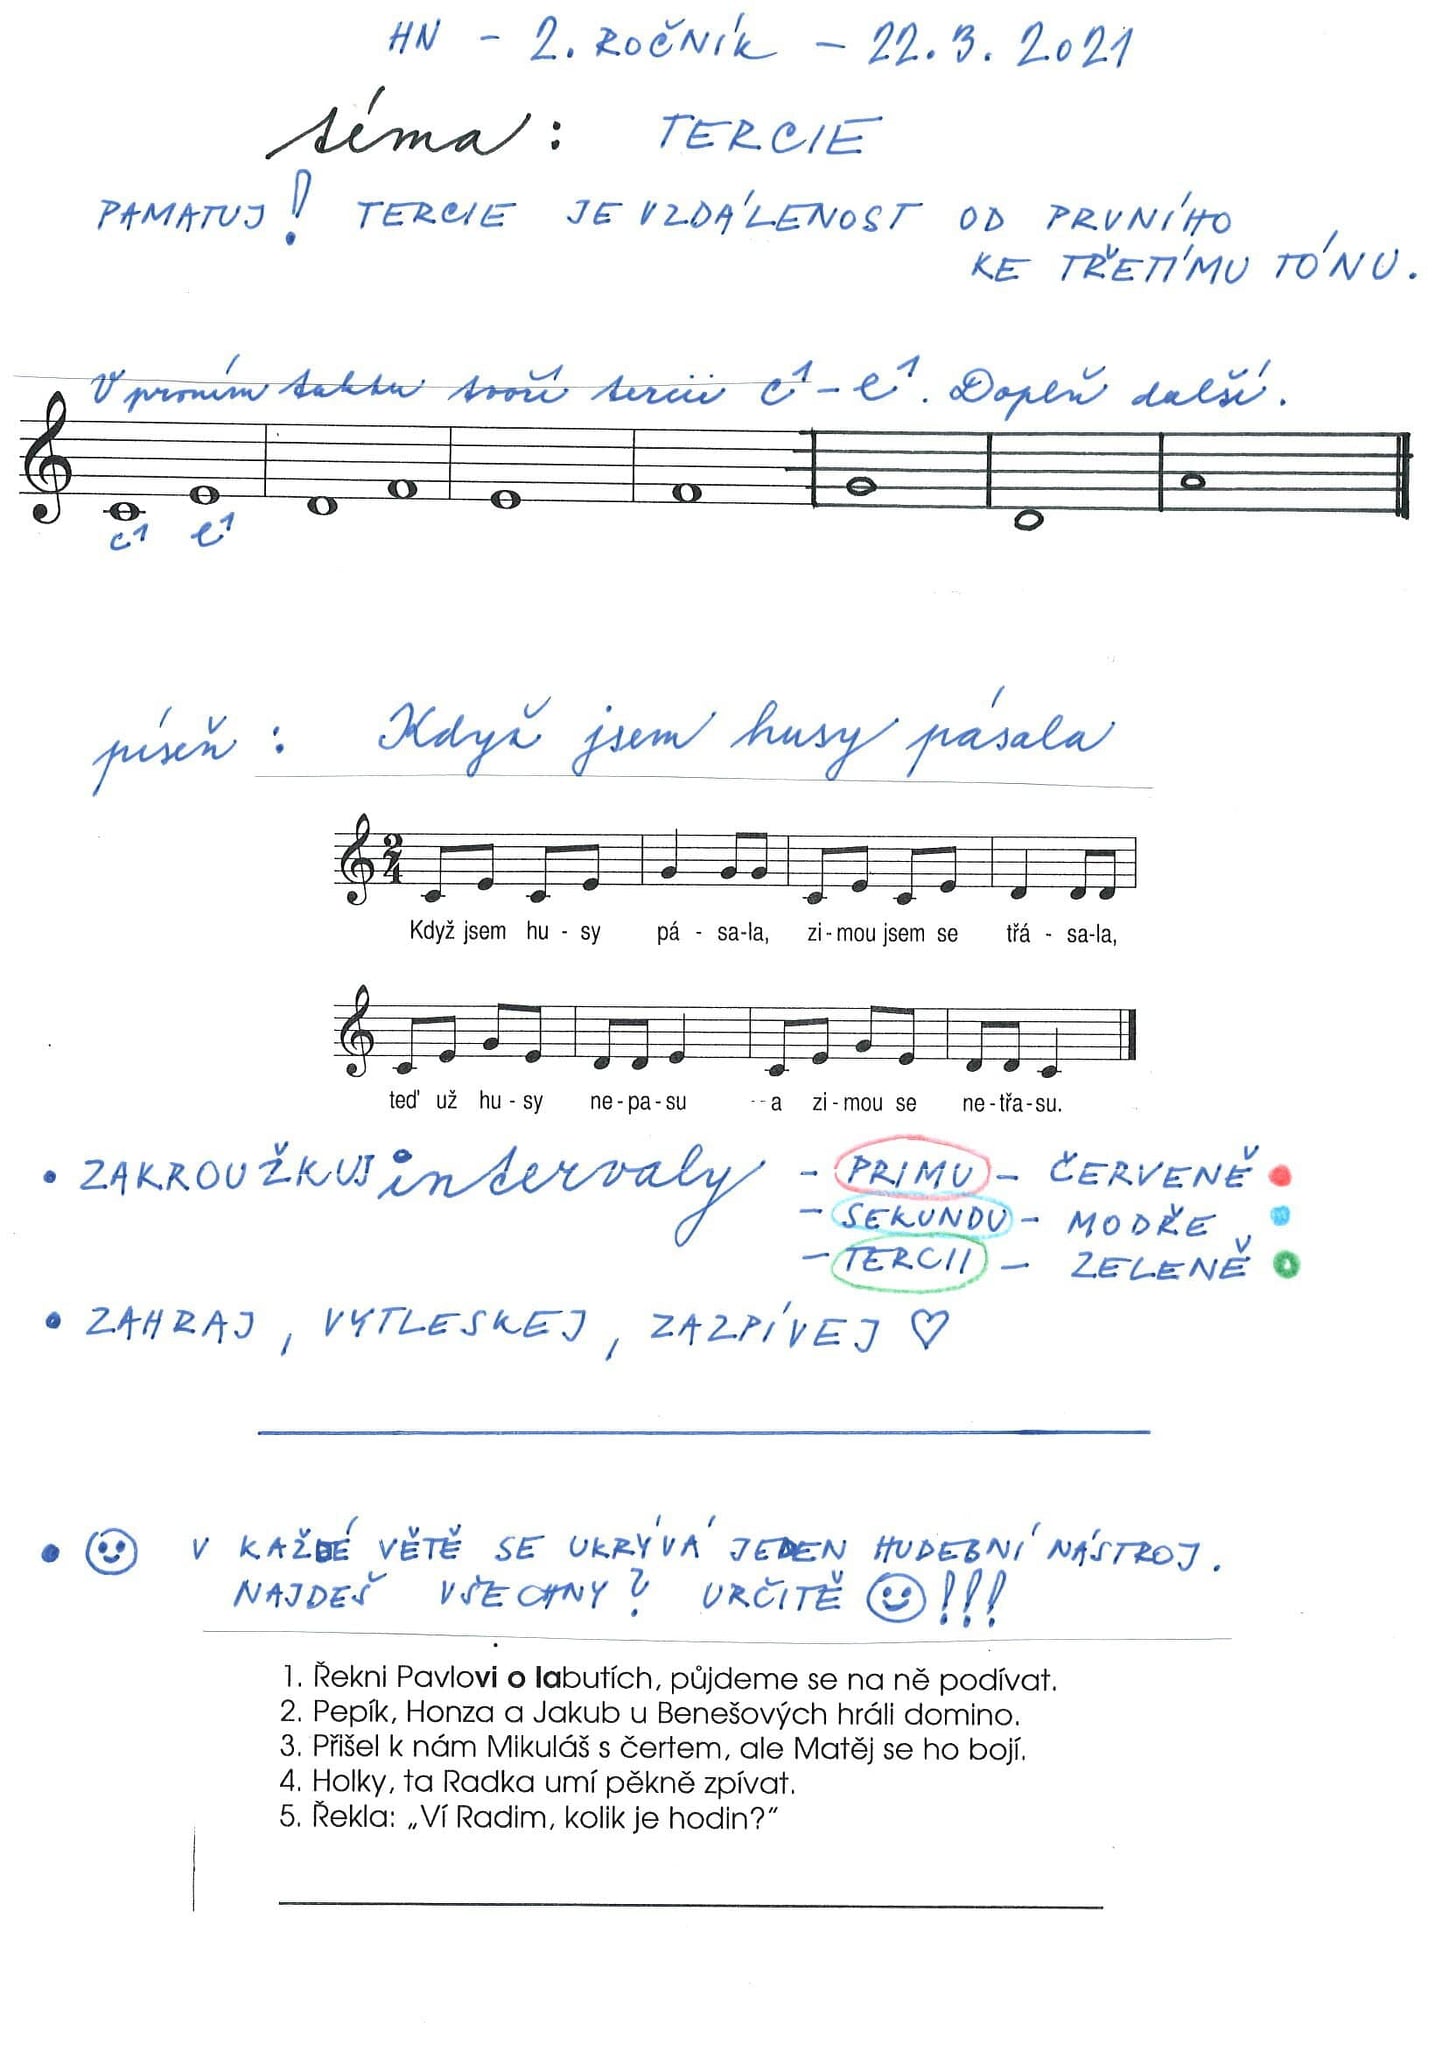 HN - 2. ROČNÍK - 22.3.2021
téma: TERCIE
PAMATUJ! TERCIE JE VZDÁLENOST OD PRVNÍHO
KE TŘETÍMU TÓNU.
V prvním taktu tvoří tercii c¹-e¹. Doplň další.
c¹ e¹
píseň: Když jsem husy pásala
2
4
Když jsem hu - sy pá - sa-la, zi-mou jsem se třá - sa-la,
teď už hu - sy ne-pa-su - - a zi-mou se ne-třa-su.
• ZAKROUŽKUJ intervaly - PRIMU - ČERVENĚ
- SEKUNDU - MODŘE
- TERCII - ZELENĚ
• ZAHRAJ, VYTLESKEJ, ZAZPÍVEJ ♡
• ☺ V KAŽDÉ VĚTĚ SE UKRÝVÁ JEDEN HUDEBNÍ NÁSTROJ.
NAJDEŠ VŠECHNY? URČITĚ ☺!!!
1. Řekni Pavlovi o labutích, půjdeme se na ně podívat.
2. Pepík, Honza a Jakub u Benešových hráli domino.
3. Přišel k nám Mikuláš s čertem, ale Matěj se ho bojí.
4. Holky, ta Radka umí pěkně zpívat.
5. Řekla: „Ví Radim, kolik je hodin?"